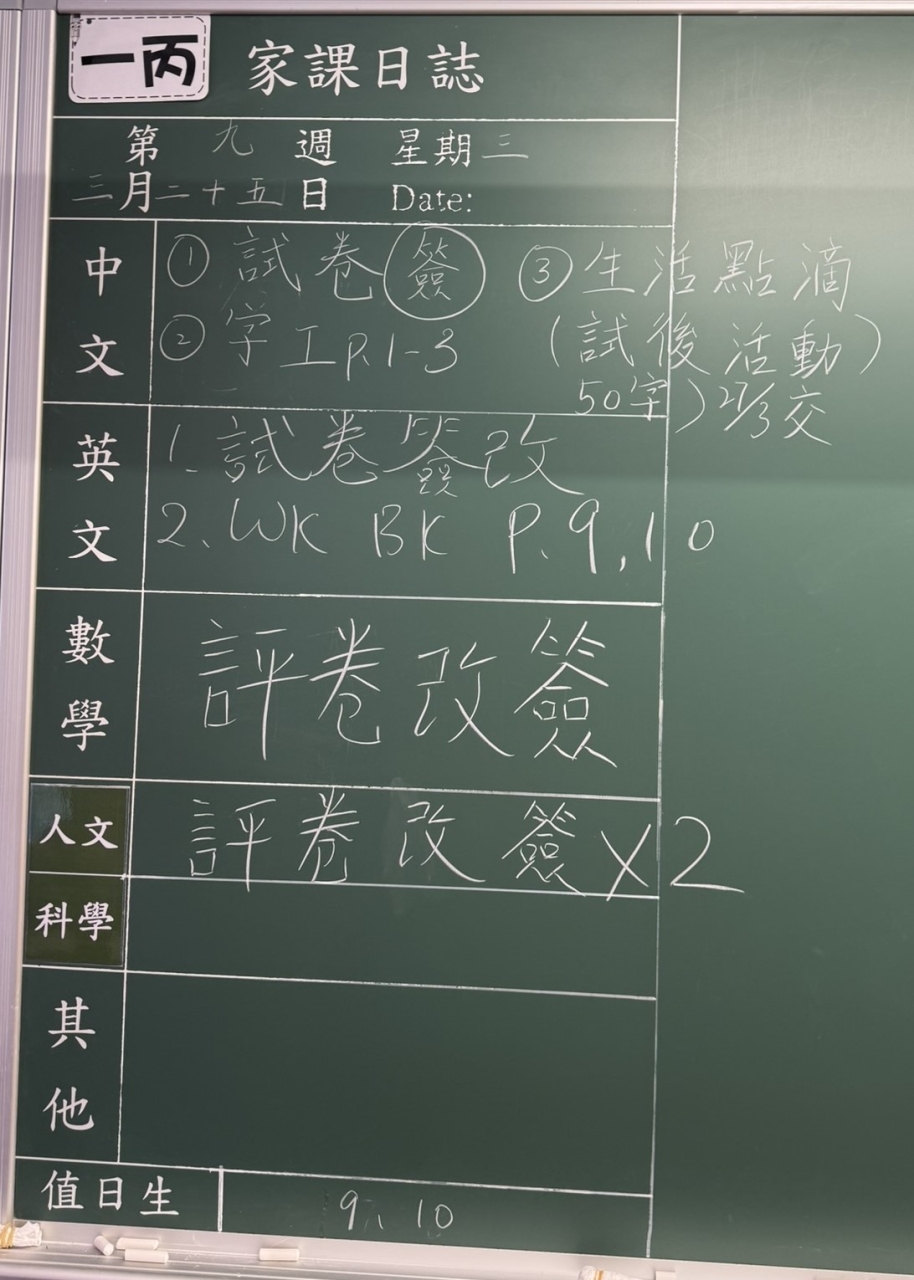 一丙 家課日誌
第九週 星期三
三月二十五日 Date:
中文
① 試卷簽
② 字工P.1-3
③ 生活點滴
(試後活動)
50字)27/3交
英文
1. 試卷簽改
2. WK BK P.9,10
數學
評卷改簽
人文
評卷改簽X2
科學
其他
值日生
9、10